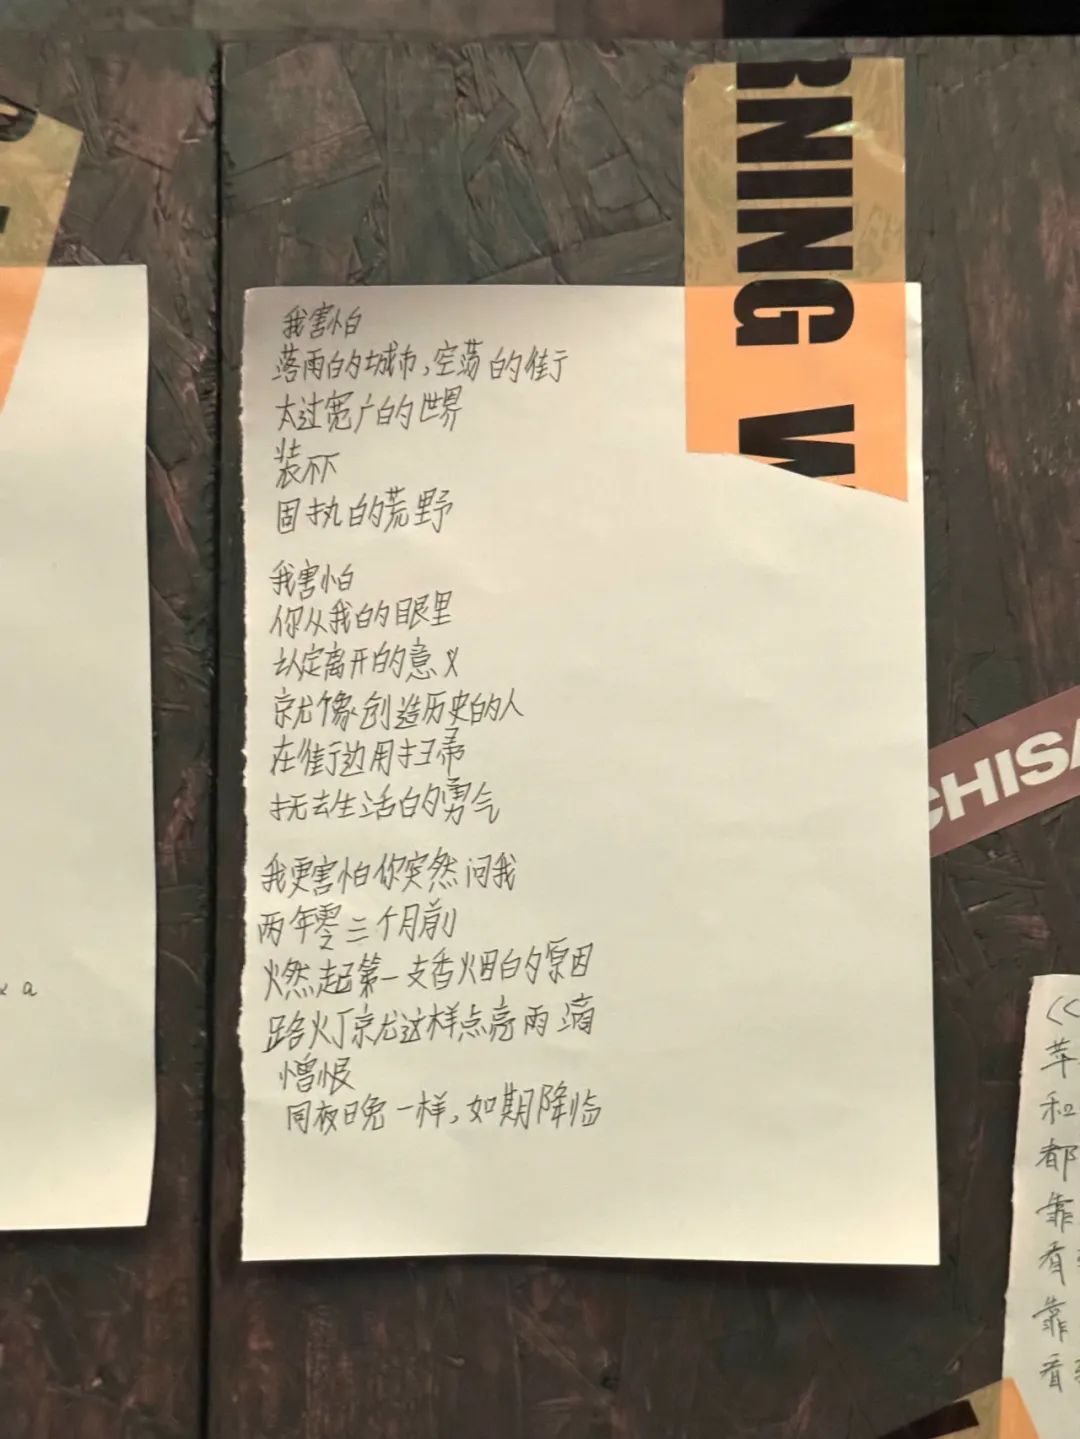 RNING W
我害怕
落雨的城市,空荡的街
太过宽广的世界
装不下
固执的荒野
我害怕
你从我的眼里
认定离开的意义
就像创造历史的人
在街边用扫帚
抚去生活的勇气
我更害怕你突然问我
两年零三个月前
燃起第一支香烟的原因
路灯就这样点亮雨滴
憎恨
同夜晚一样,如期降临
CHISA
x a
《
苹
和
都
靠
看
靠
看